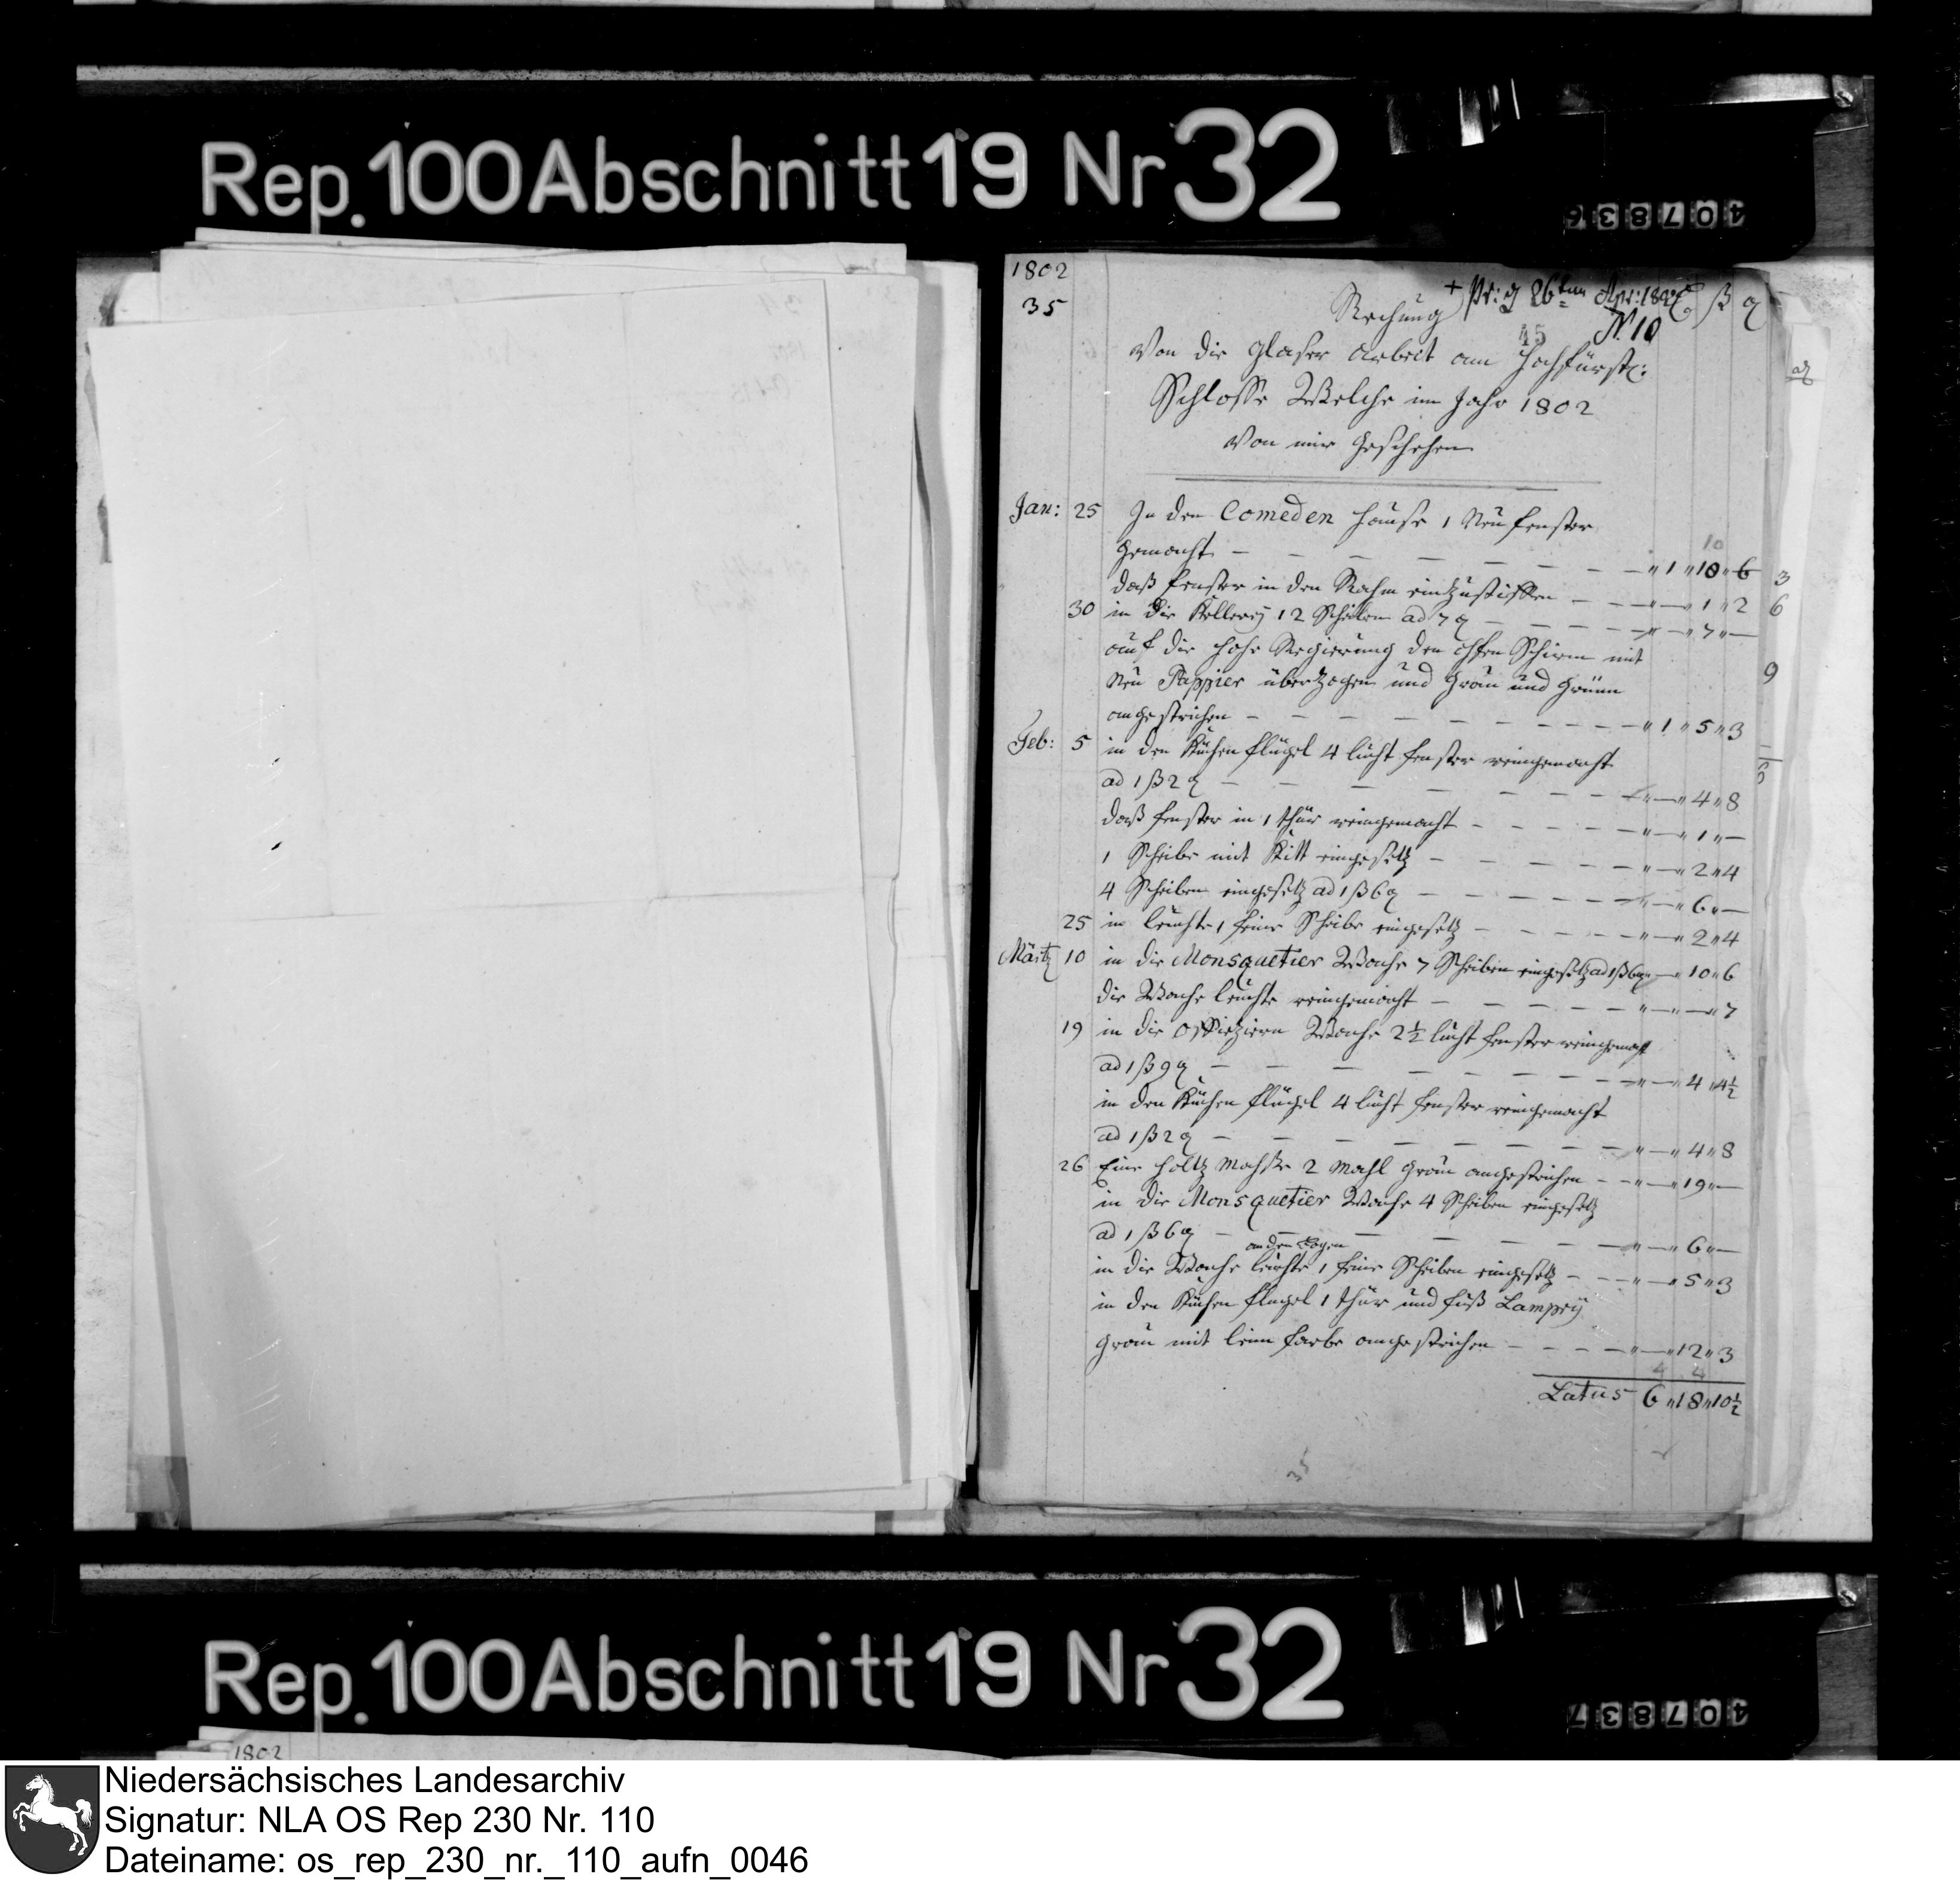 Rep. 100 Abschnitt 19 Nr 32
407836
1802
35
+ Pr: d 26ten Apr: 1802 ß ₰
N. 10
45
Rechnung
Von die glaser arbeit am Hochfürstl:
Schlosse Welche im Jahr 1802
Von mir geschehen
Jan: 25 In den Comeden Hause 1 Neu fenster
10
gemacht — — — — — — — " 1 " 10 " 6
daß fenster in den Rahm eintzustiften — — — " — " 1 " 2
30 in die Kellerey 12 Scheiben ad 7 ₰ — — — — " — " 7 " —
auf die hohe Regierung den ofen Schirm mit
Neu Pappier übertzogen und grau und grünn
angestrichen — — — — — — — " 1 " 5 " 3
Feb: 5 in den Küchen flügel 4 lucht fenster reingemacht
ad 1 ß 2 ₰ — — — — — — — " — " 4 " 8
daß fenster in 1 thür reingemacht — — — — " — " 1 " —
1 Scheibe mit Kitt eingesetz — — — — " — " 2 " 4
4 Scheiben eingesetz ad 1 ß 6 ₰ — — — — " — " 6 " —
25 in leuchte 1 feine Scheibe eingesetz — — — — " — " 2 " 4
Märtz 10 in die Monsquetier Wache 7 Scheiben eingesetz ad 1 ß 6 ₰ " — " 10 " 6
die Wache leuchte reingemacht — — — — " — " — " 7
19 in die offiziern Wache 2½ lucht fenster reingemacht
ad 1 ß 9 ₰ — — — — — — — " — " 4 " 4½
in den Küchen flügel 4 lucht fenster reingemacht
ad 1 ß 2 ₰ — — — — — — — " — " 4 " 8
26 Eine holtz 2 mahl grau angestrichen — — " — " 19 " —
in die Monsquetier Wache 4 Scheiben eingesetz
ad 1 ß 6 ₰ — — — — — — " — " 6 " —
an den Bogen
in die Wache leuchte 1 feine Scheiben eingesetz — — " — " 5 " 3
in den Küchen flügel 1 thür und fuß Lamprÿ
grau mit leim farbe angestrichen — — — — " — " 12 " 3
4 4
Latus 6 " 18 " 10½
35
3
6
9
Rep. 100 Abschnitt 19 Nr 32
407837
1802
Niedersächsisches Landesarchiv
Signatur: NLA OS Rep 230 Nr. 110
Dateiname: os_rep_230_nr._110_aufn_0046